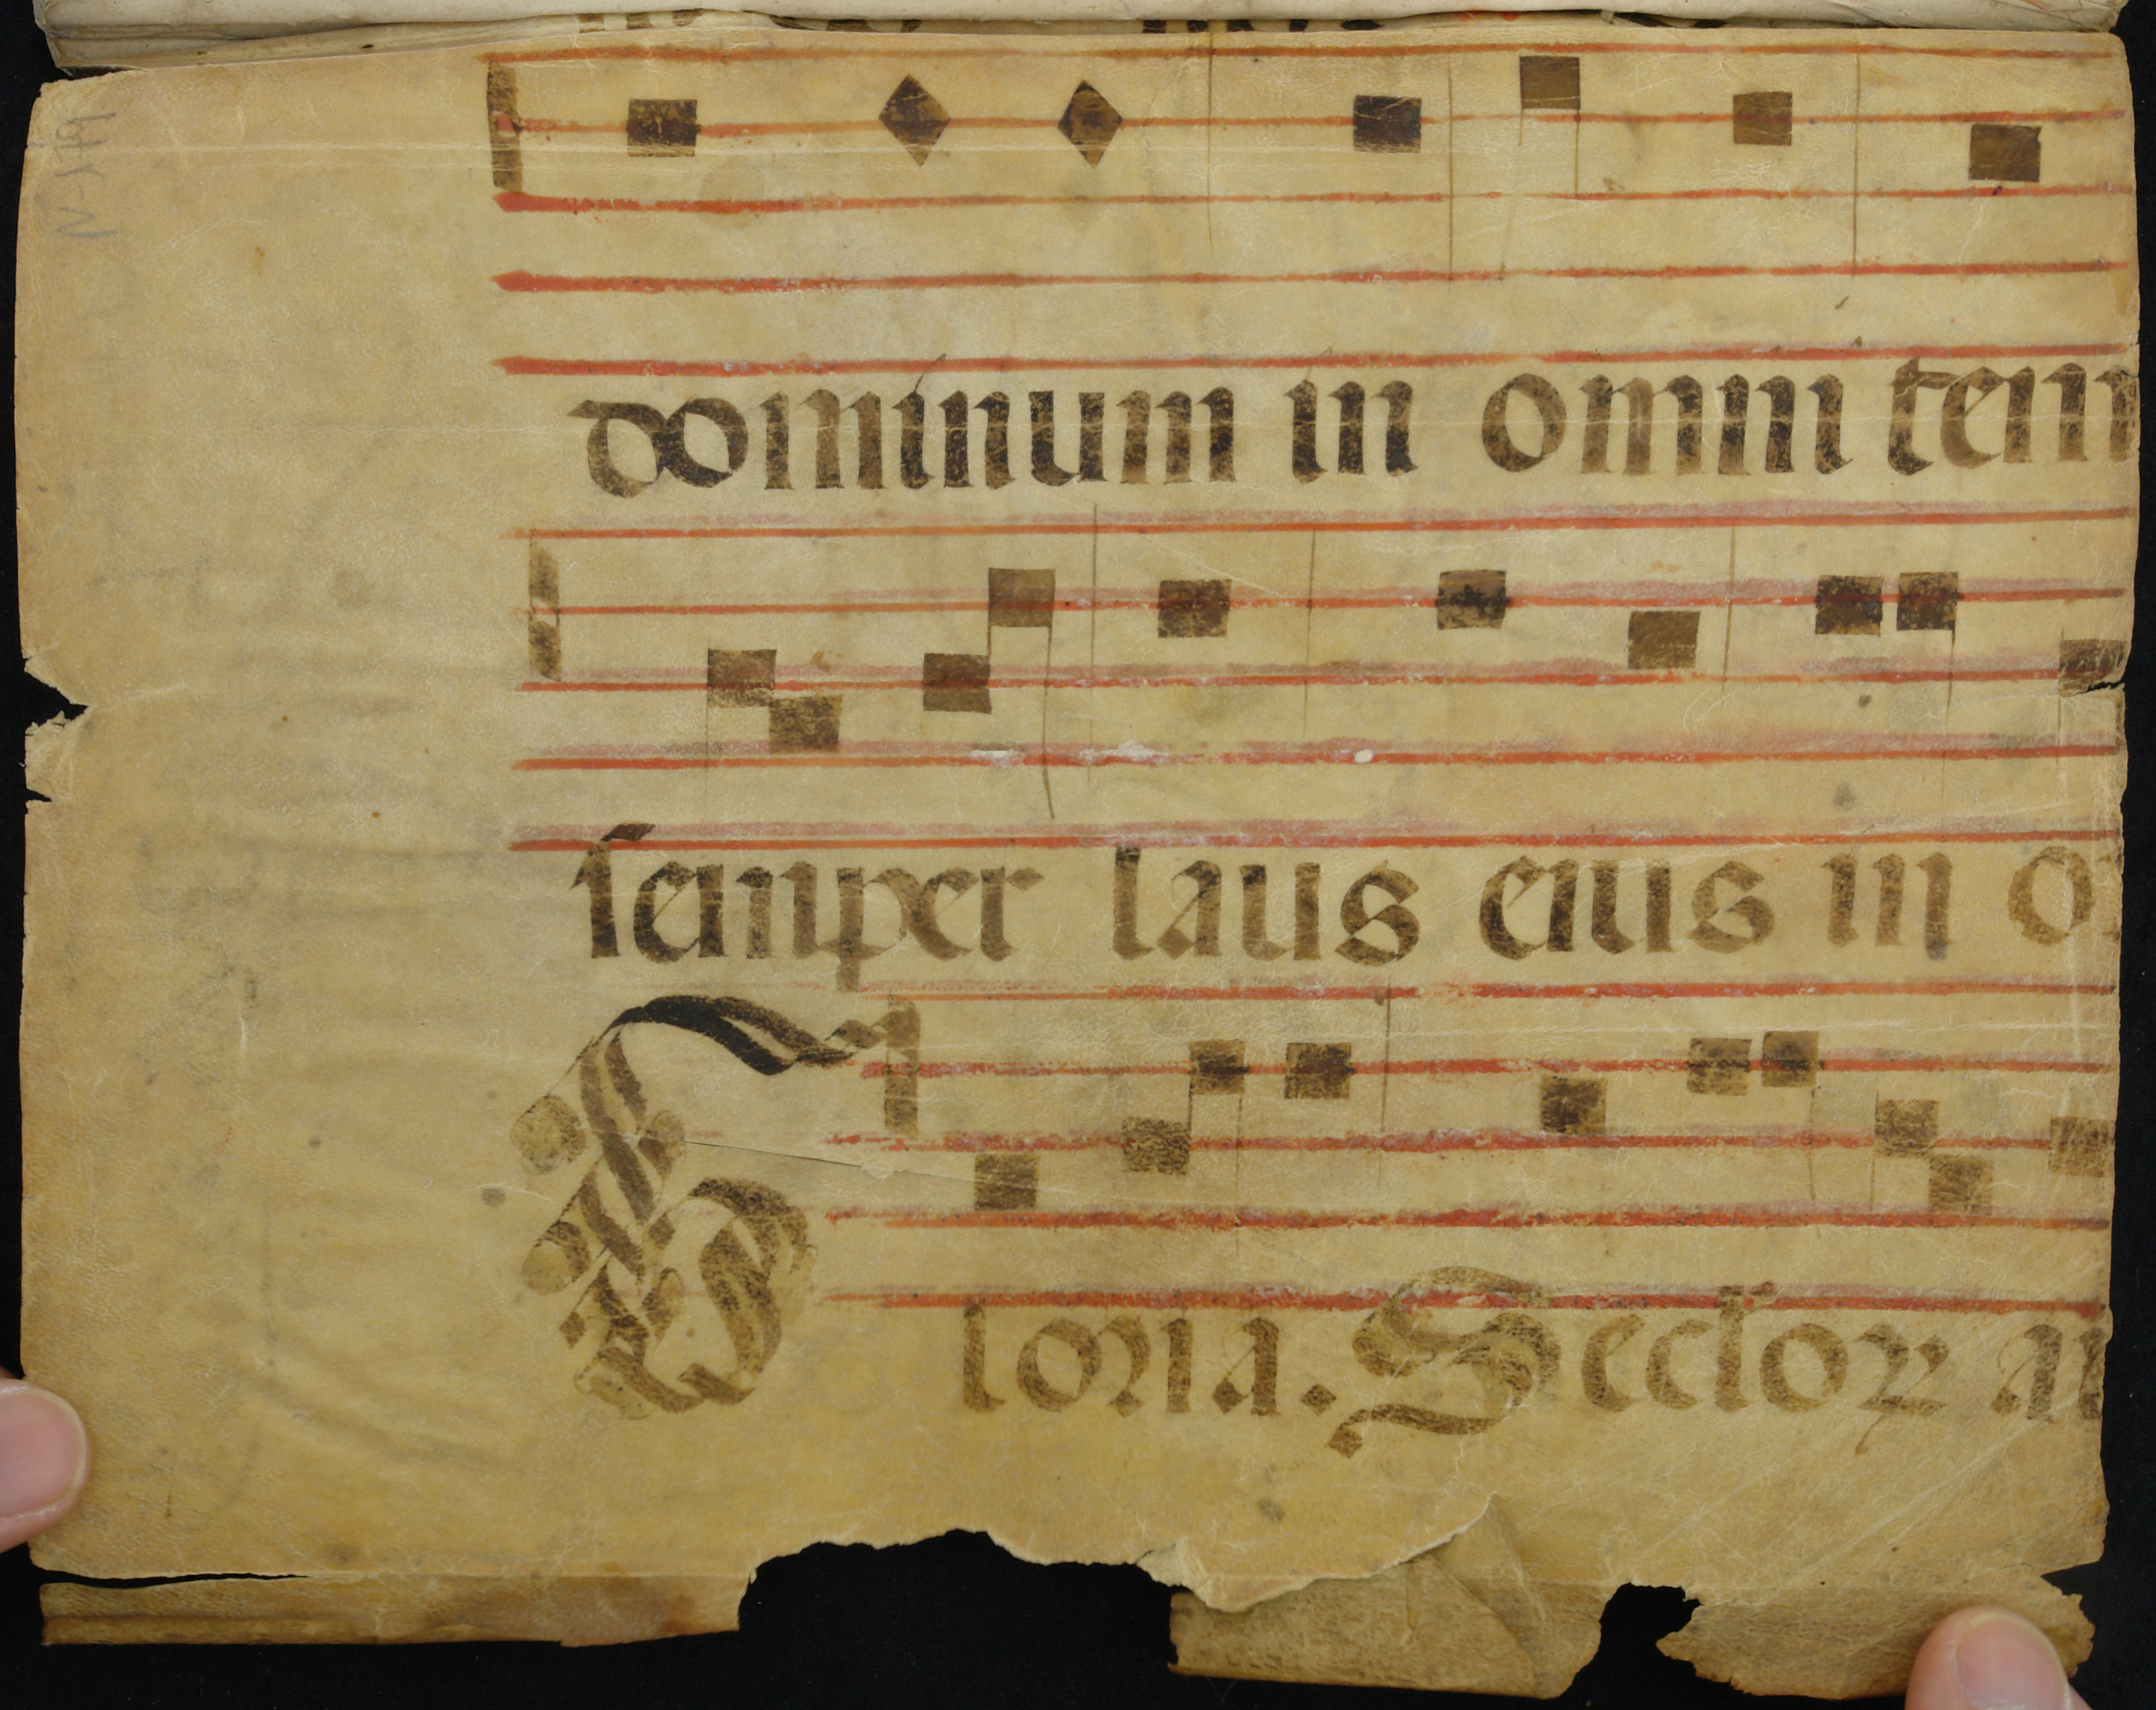 dominum in omni tem
semper laus eius in o
Gloria. Seclor